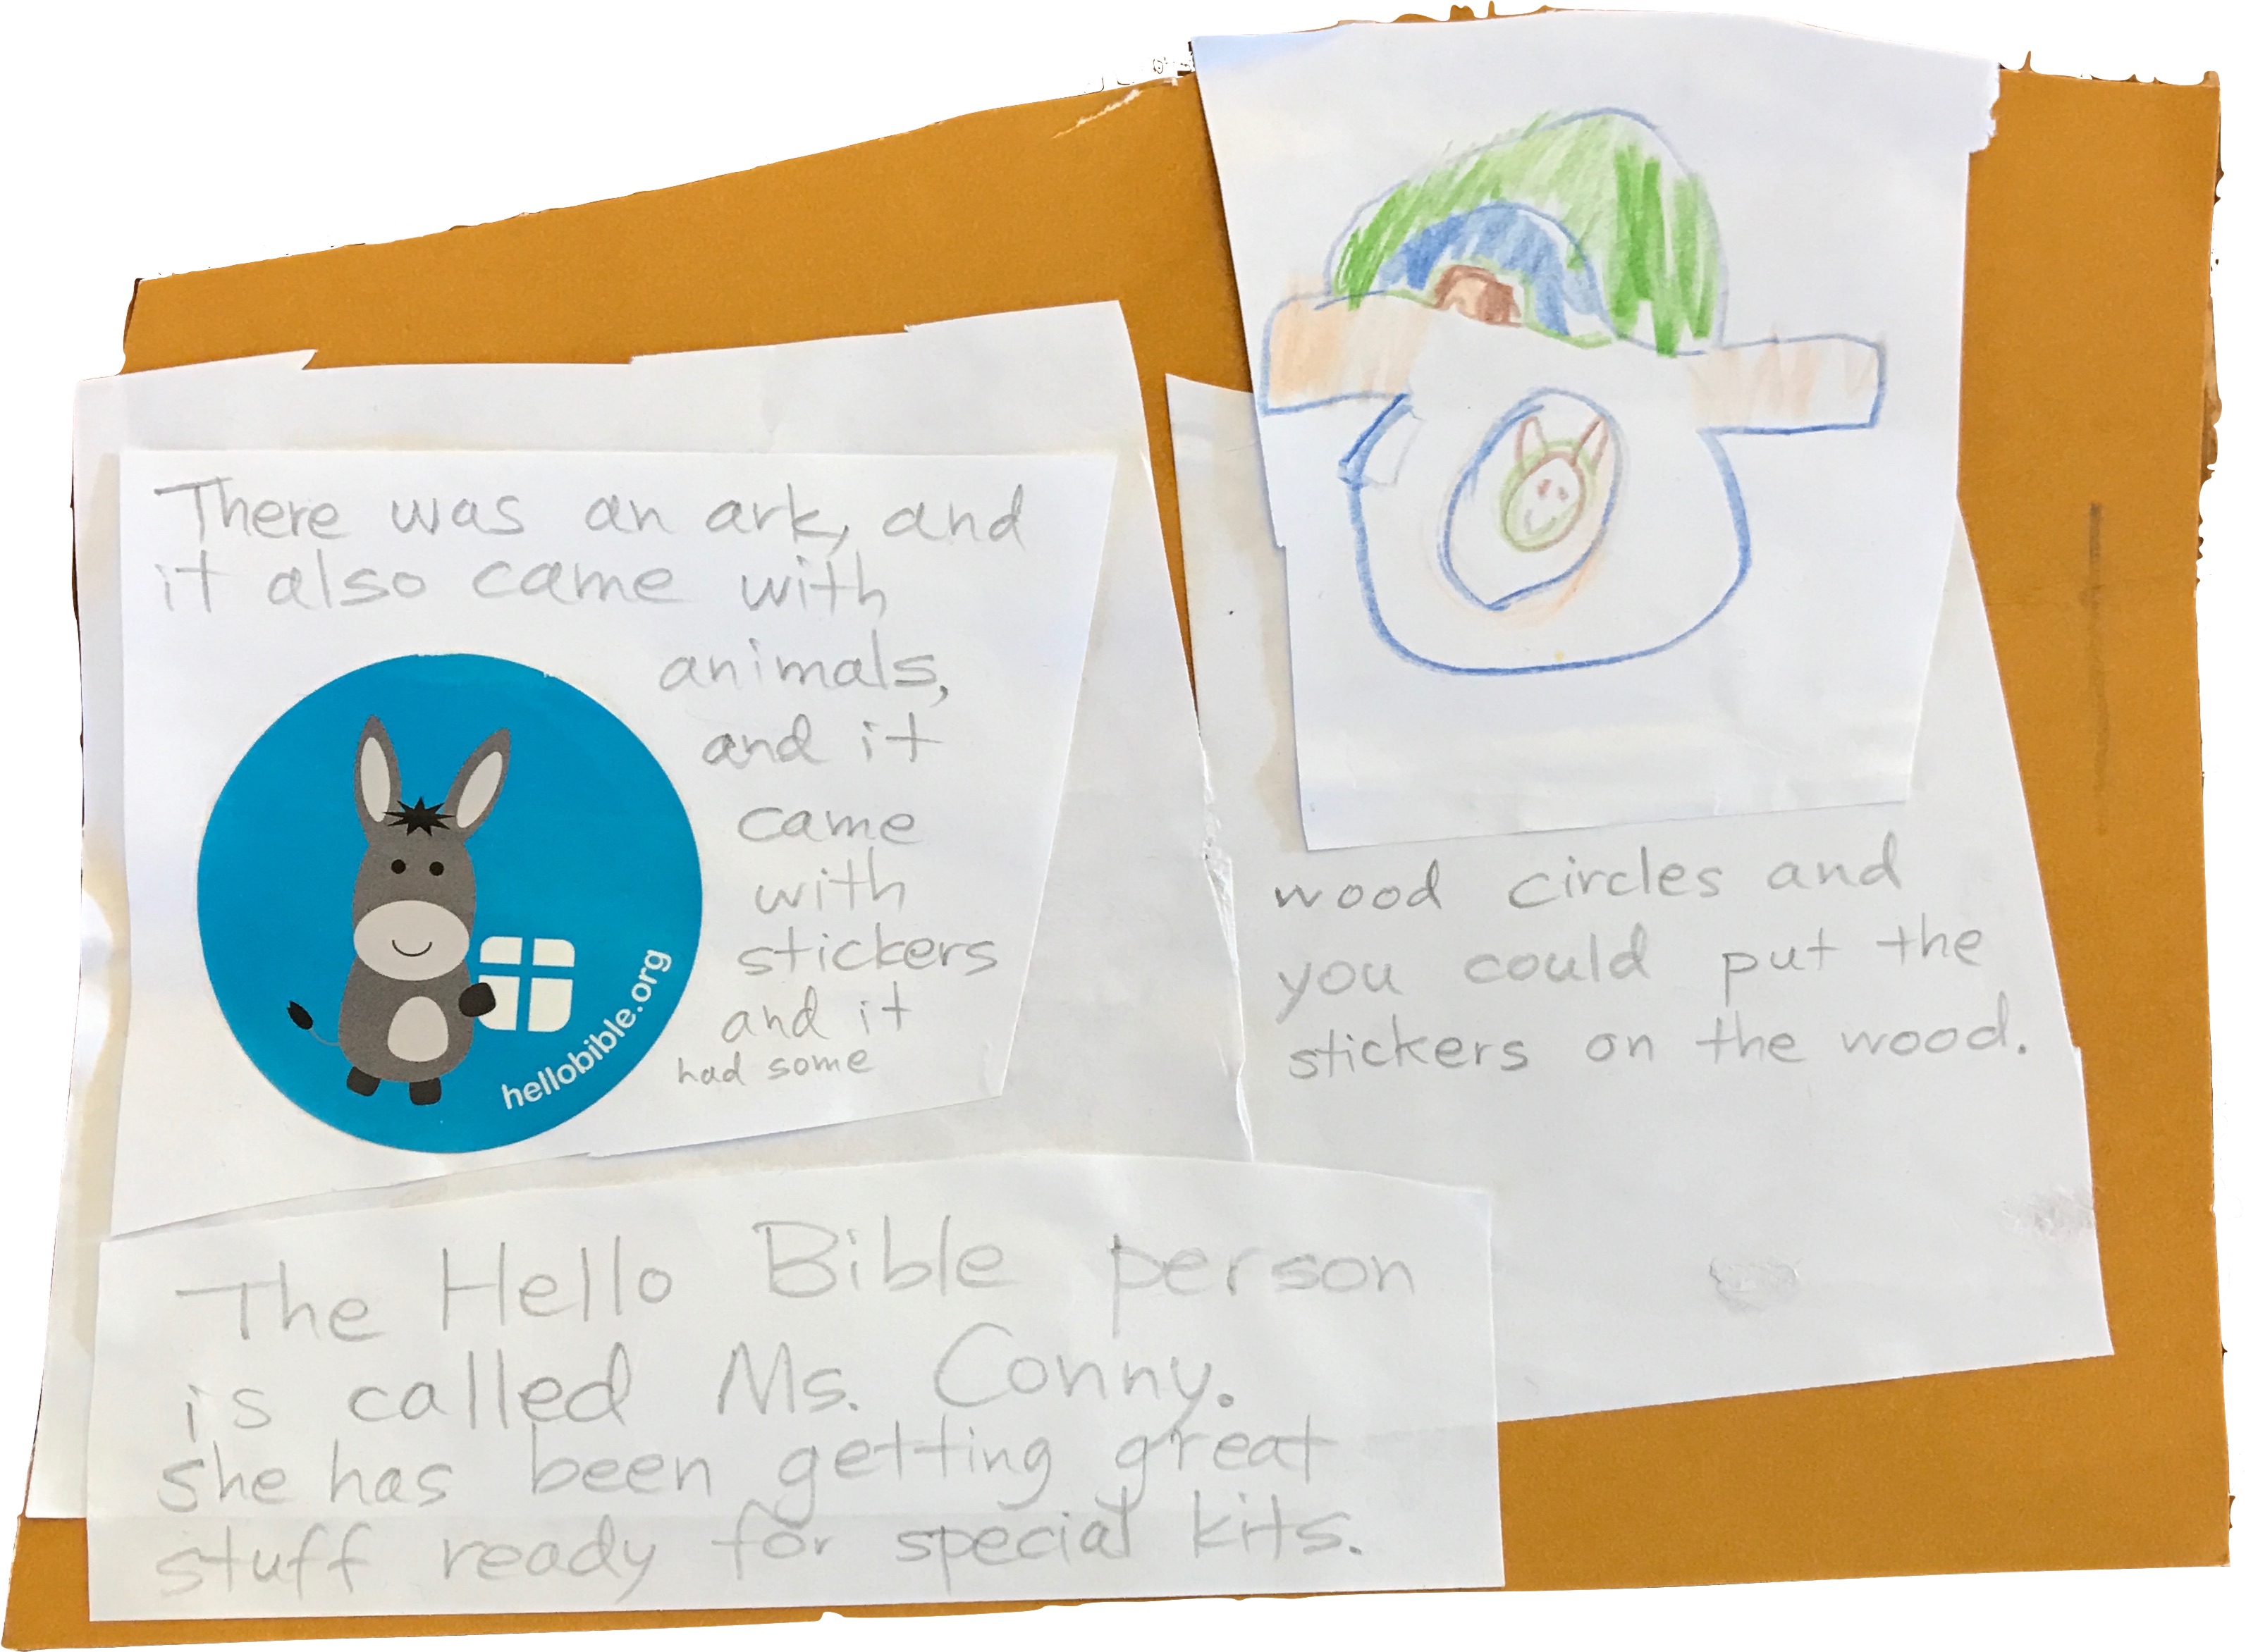 There was an ark, and
it also came with
animals,
and it
came
with
stickers
and it
had some
hellobible.org
wood circles and
you could put the
stickers on the wood.
The Hello Bible person
is called Ms. Conny.
she has been getting great
stuff ready for special kits.